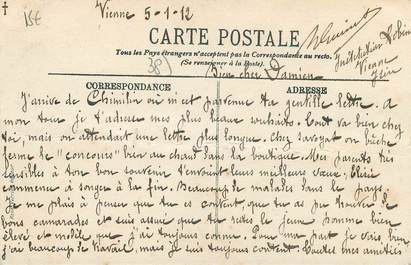 Vienne 5-1-12
15€
CARTE POSTALE
Tous les Pays étrangers n'acceptent pas la Correspondance au recto.
(Se renseigner à la Poste).
38
Institution Robin
Vienne
Isère
Bien cher Damien
CORRESPONDANCE
ADRESSE
J'arrive de Chimilin où m'est parvenue ta gentille lettre. A
mon tour je t'adresse mes plus beaux souhaits. Tout va bien chez
toi, mais on attendait une lettre plus longue. Chez Savoyat on bûche
ferme le "concours" bien au chaud dans la boutique. Mes parents très
sensibles à ton bon souvenir t'envoient leurs meilleurs vœux.
commence à songer à la fin. Beaucoup de malades dans le pays.
Je me plais à penser que tu es content, que tu as pu trouver de
bons camarades et suis assuré que tu restes le jeune homme bien
élevé et modèle que j'ai toujours connu. Pour ma part je vais bien
j'ai beaucoup de travail, mais je suis toujours content. Toutes mes amitiés